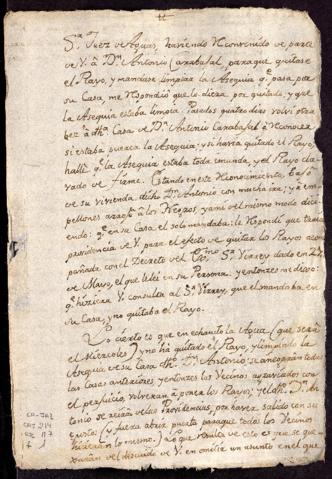 Sr. Juez de Aguas, haviendo Reconvenido de parte
de V. â Dn. Antonio Carabasal paraque quitase
el Rayo, y mandase limpiar la Asequia qe. pasa por
su Casa, me Respondió que lo diera por quitado, y que
la Asequia estaba limpia. Pasados quatro dias volví otra
vez â dha Casa de Dn. Antonio Carabasal â Reconocer
si estaba puerca la Asequia, y si havia quitado el Rayo,
hallé qe. la Asequia estaba toda inmunda, y el Rayo cla-
vado de firme. Estando en este Reconocimiento, baxó
de su vivienda dicho Dn. Antonio con mucha ira, y â em-
pellones arrojó â los Negros, y a mi del mismo modo dici-
endo: qe. en su Casa el solo mandaba: le Respondí que trahia
providencia de V. para el efecto de quitar los Rayos acom-
pañada con el Decreto del Exmo. Sr. Virrey dado en
de Mayo, el que lehí en su Persona: y entonzes me dixo:
qe. hiziera V. consulta al Sr. Virrey, que el mandaba en
su Casa, y no quitaba el Rayo.
Lo cierto es que en echando la Agua (que será
el Miercoles) y no há quitado el Rayo, y limpiado la
Asequia de su Casa dho. Dn. Antonio se aniegan todas
las Casas anteriores, y entonzes los Vecinos agraviados con
el perjuicio, volverán a poner los Rayos; y el dho. Dn. An-
tonio se reirá de las Providencias, por haver salido con su
gusto, (y fuera abrir puerta paraque todos los Vecinos
hizieran lo mesmo.) Lo que resulta de esto es, que se que-
xarán del descuido de V. en omitir un asunto en el que